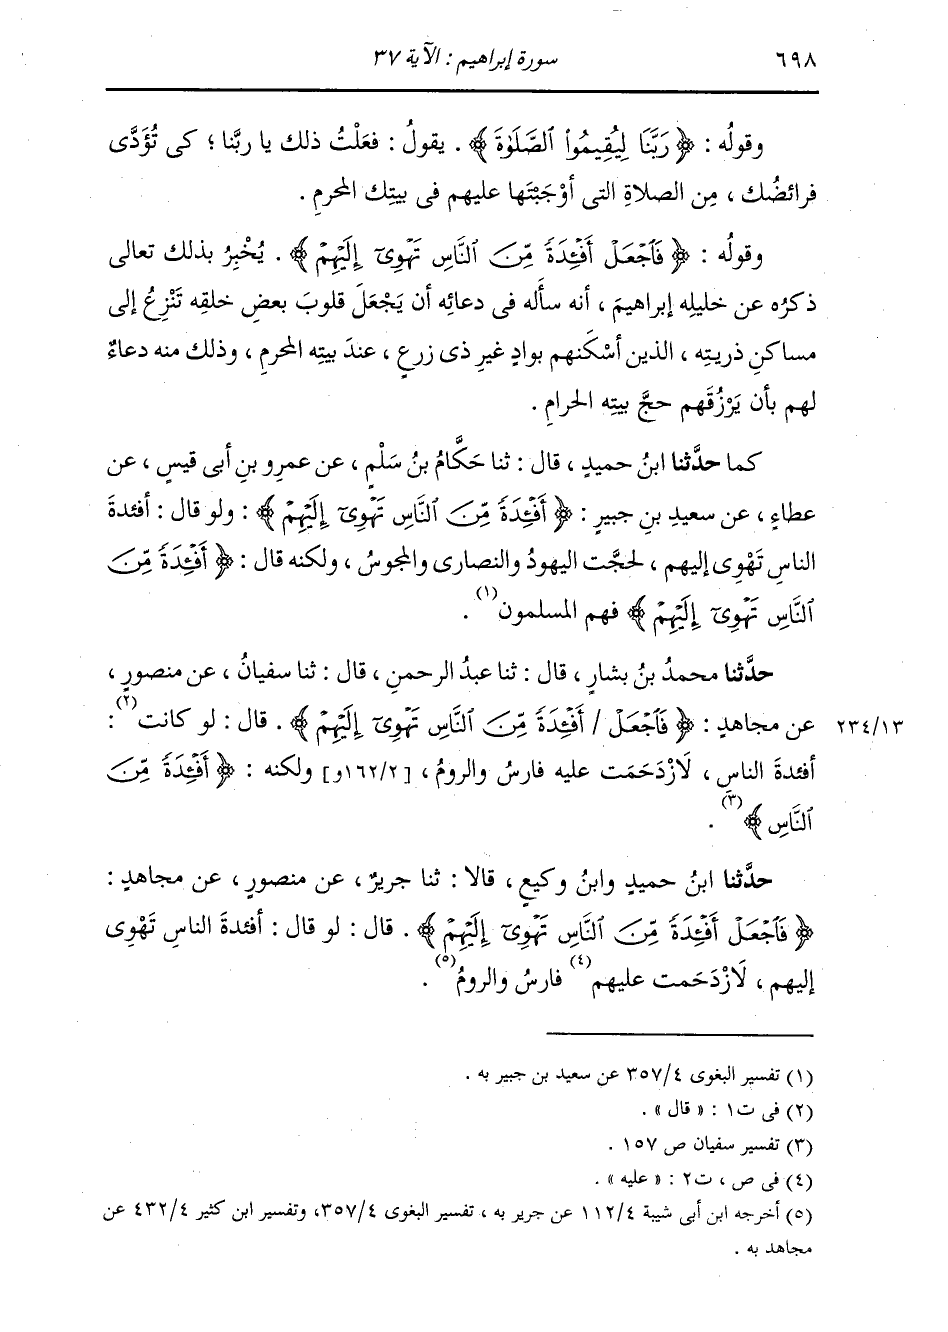 ٦٩٨
سورة إبراهيم : الآية ٣٧
وقولُه : ﴿ رَبَّنَا لِيُقِيمُوا۟ ٱلصَّلَوٰةَ ﴾ . يقولُ : فعَلْتُ ذلك يا ربَّنا ؛ كى تُؤَدَّى
فرائضُك ، مِن الصلاةِ التى أوْجَبْتَها عليهم فى بيتِك المحرمِ .
وقولُه : ﴿ فَٱجْعَلْ أَفْـِٔدَةً مِّنَ ٱلنَّاسِ تَهْوِىٓ إِلَيْهِمْ ﴾ . يُخْبِرُ بذلك تعالى
ذكرُه عن خليلِه إبراهيمَ ، أنه سأَله فى دعائِه أن يَجْعَلَ قلوبَ بعضِ خلقِه تَنْزِعُ إلى
مساكنِ ذريتِه ، الذين أسْكَنهم بوادٍ غيرِ ذى زرعٍ ، عندَ بيتِه المحرمِ ، وذلك منه دعاءٌ
لهم بأن يَرْزُقَهم حجَّ بيتِه الحرامِ .
كما حدَّثنا ابنُ حميدٍ ، قال : ثنا حَكَّامُ بنُ سَلْمٍ ، عن عمرِو بنِ أبى قيسٍ ، عن
عطاءٍ ، عن سعيدِ بنِ جبيرٍ : ﴿ أَفْـِٔدَةً مِّنَ ٱلنَّاسِ تَهْوِىٓ إِلَيْهِمْ ﴾ : ولو قال : أفئدةَ
الناسِ تَهْوِى إليهم ، لحجَّت اليهودُ والنصارى والمجوسُ ، ولكنه قال : ﴿ أَفْـِٔدَةً مِّنَ
ٱلنَّاسِ تَهْوِىٓ إِلَيْهِمْ ﴾ فهم المسلمون(١) .
حدَّثنا محمدُ بنُ بشارٍ ، قال : ثنا عبدُ الرحمنِ ، قال : ثنا سفيانُ ، عن منصورٍ ،
٢٣٤/١٣ عن مجاهدٍ : ﴿ فَٱجْعَلْ / أَفْـِٔدَةً مِّنَ ٱلنَّاسِ تَهْوِىٓ إِلَيْهِمْ ﴾ . قال : لو كانت(٢) :
أفئدةَ الناسِ ، لَازْدَحَمَت عليه فارسُ والرومُ ، [١٦٢/٢و] ولكنه : ﴿ أَفْـِٔدَةً مِّنَ
ٱلنَّاسِ ﴾(٣) .
حدَّثنا ابنُ حميدٍ وابنُ وكيعٍ ، قالا : ثنا جريرٌ ، عن منصورٍ ، عن مجاهدٍ :
﴿ فَٱجْعَلْ أَفْـِٔدَةً مِّنَ ٱلنَّاسِ تَهْوِىٓ إِلَيْهِمْ ﴾ . قال : لو قال : أفئدةَ الناسِ تَهْوِى
إليهم ، لَازْدَحَمت عليهم(٤) فارسُ والرومُ(٥) .
(١) تفسير البغوى ٣٥٧/٤ عن سعيد بن جبير به .
(٢) فى ت١ : « قال » .
(٣) تفسير سفيان ص ١٥٧ .
(٤) فى ص ، ت٢ : « عليه » .
(٥) أخرجه ابن أبى شيبة ١١٢/٤ عن جرير به ، تفسير البغوى ٣٥٧/٤، وتفسير ابن كثير ٤٣٢/٤ عن
مجاهد به .